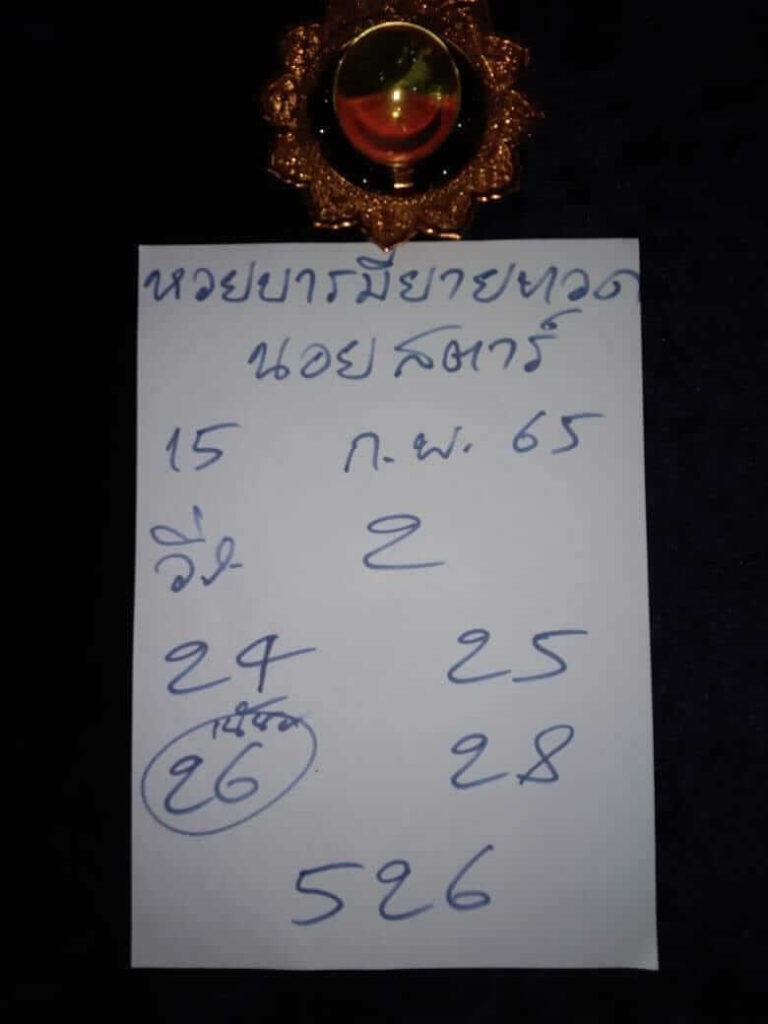 หวยบารมียายทวด
นอยสตาร์
15 ก.พ. 65
วิ่ง 2
24 25
เน้น
26 28
526